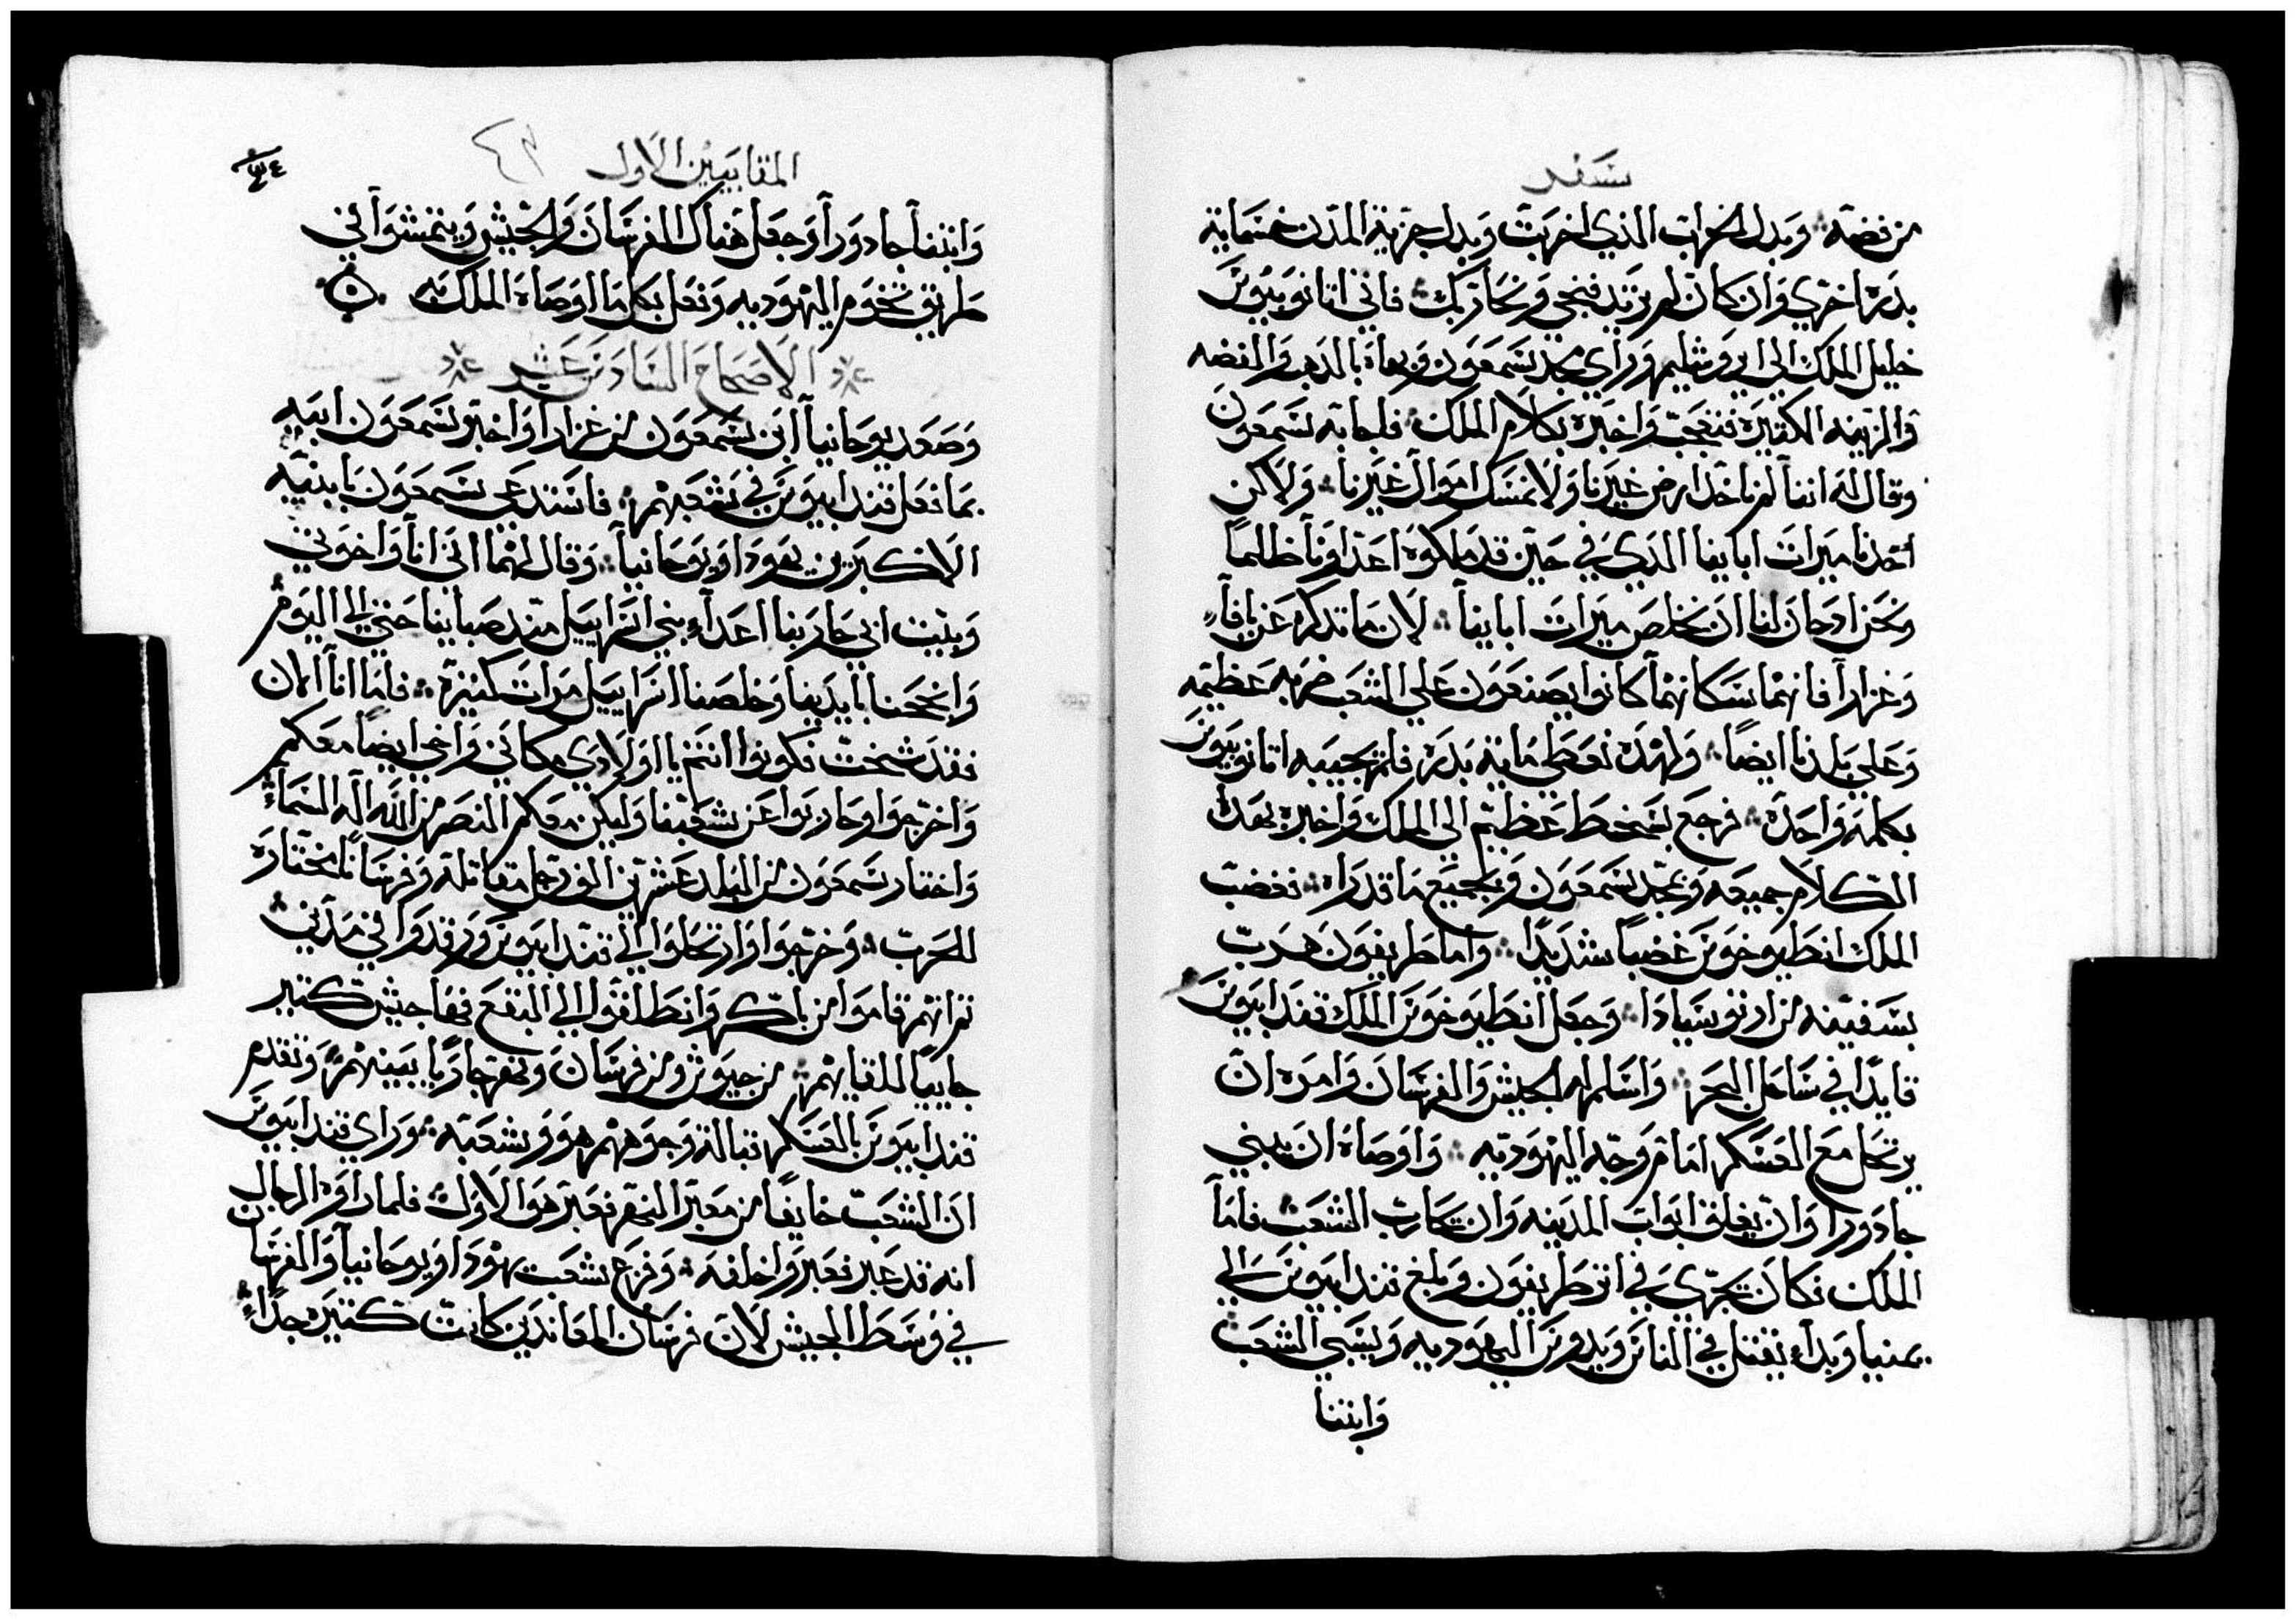 سفر
من فضه وبدل الخراب الذي اخربت وبدل جزية المدن خمسماية
بدره اخري وان كان لم تريد فنجي ونحاربك فاتي اتانوبيوس
خليل الملك الي ايروشليم وراي مجد سمعون وبهاه بالذهب والفضه
والزينه الكثيره فتعجب واخبره بكلام الملك فاجابه سمعون
وقال له اننا لم ناخذ ارض غيرنا ولا نمسك اموال غيرنا ولاكن
اخذنا ميراث اباينا الذي في حين قد ملكوه اعداونا ظلماً
ونحن اذ حان لنا ان نخلص ميرات اباينا لان ما تذكره عن يافا
وغزارا فانهما سكانهما كانوا يصنعون علي الشعب ضربه عظيمه
وعلي بلدنا ايضاً ولهذه نعطي مايه بدره فلم يجيبه اتانوبيوس
بكلمه واحده فرجع بسخط عظيم الي الملك واخبره بهذا
الكلام جميعه وبمجد سمعون وبجميع ما قد راه فغضب
الملك انطيوخوس غضباً شديدا واما طريفون هرب
بسفينه من ارتوسيادا وجعل انطيوخوس الملك قندابيوس
قايدا في ساحل البحر واسلم له الجيش والفرسان وامره ان
يرتحل مع العسكر امام وجه اليهوديه واوصاه ان يبني
جادورا وان يغلق ابواب المدينه وان يحارب الشعب فاما
الملك فكان يجري في اثر طريفون وبلغ قندابيوس الي
يمنيا وبداء يقتل في الناس ويدوس اليهوديه ويسبي الشعب
وابتنا
المقابيين الاول
٤٣
وابتنا جادورا وجعل هناك الفرسان والجيش ويتمشوا في
طريق تخوم اليهوديه وفعل بكلما اوصاه الملك به
الاصحاح السادس عشر
وصعد يوحانيا ابن سمعون من غزارا واخبر سمعون ابيه
بما فعل قندابيوس في شعبهم فاستدعي سمعون بابنيه
الاكبرين يهودا ويوحانيا وقال لهما اني انا واخوتي
وبيت ابي حاربنا اعداء بني اسراييل منذ صباينا حتي الي اليوم
وانجحنا بايدينا وخلصنا اسراييل مرات كثيرة فاما انا الان
فقد شخت فكونوا انتم يا اولادي مكاني واخي ايضا معكم
واخرجوا وحاربوا عن شعبنا وليكن معكم النصر من الله اله السماء
واختار سمعون من البلد عشرين الف رجل مقاتله وفرسانا مختاره
للحرب وخرجوا وارتحلوا الي قندابيوس ورقدوا في مديني
ثم انهم قاموا من باكر وانطلقوا الي البقع فها جيش كثير
جاييا للقايهم من جيوش ومن فرسان ونهر جاريا بينهم وتقدم
قندابيوس بالعسكر قبالة وجوههم هو وشعبه وراي قندابيوس
ان الشعب خايفا من معبر النهر فعبر هو الاول فلما راوه الرجال
انه قد عبر فعبروا خلفه وفزع شعب يهودا ويوحانيا والفرسان
في وسط الجيش لان فرسان المعاندين كانت كثيره جداً